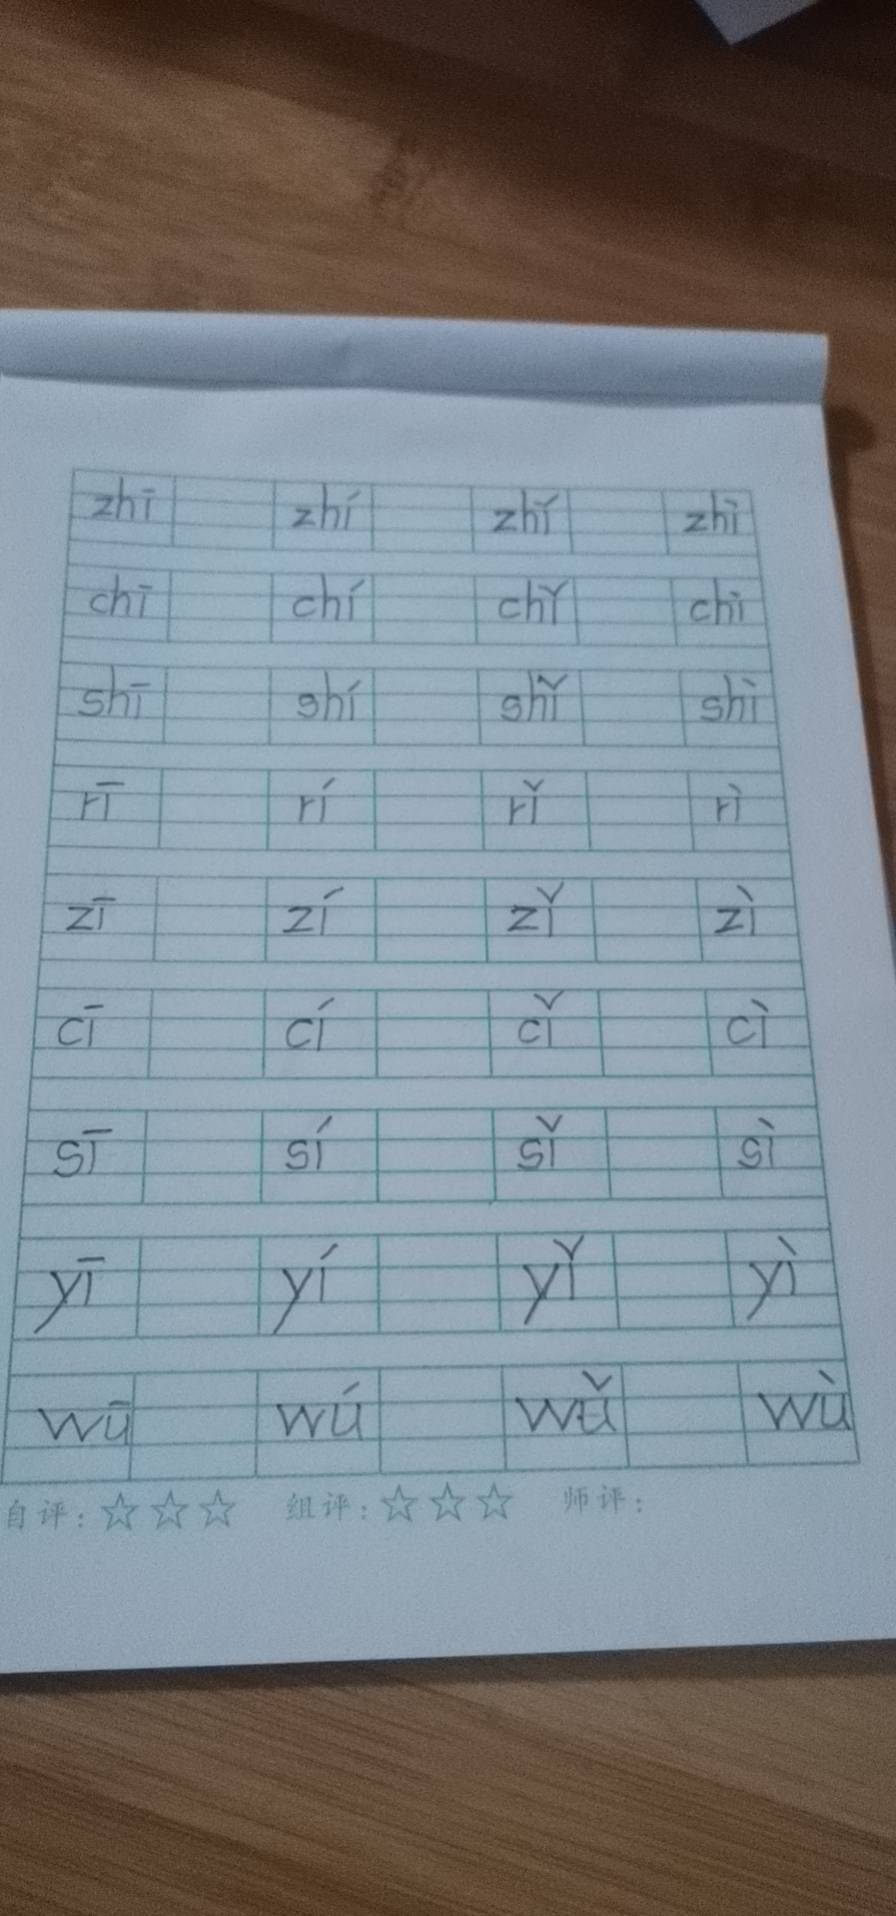 zhī zhí zhǐ zhì
chī chí chǐ chì
shī shí shǐ shì
rī rí rǐ rì
zī zí zǐ zì
cī cí cǐ cì
sī sí sǐ sì
yī yí yǐ yì
wū wú wǔ wù
自评：☆☆☆ 组评：☆☆☆ 师评：